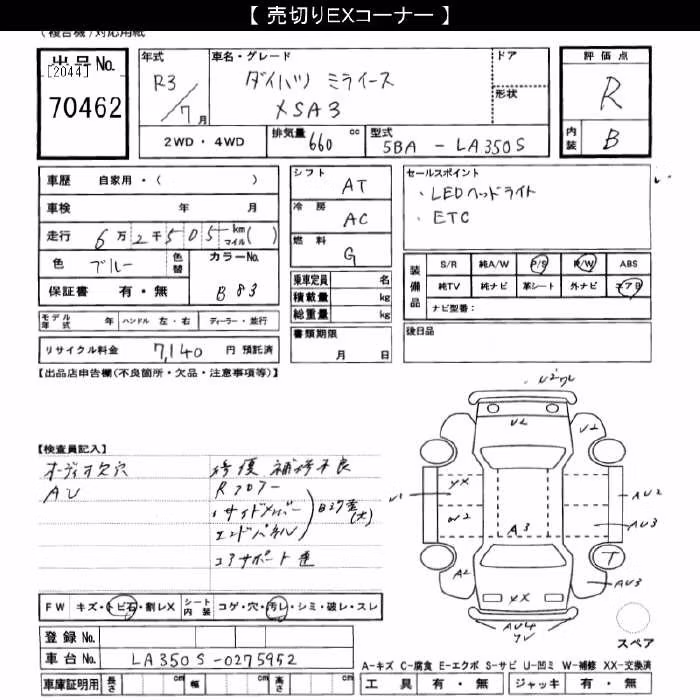 【 売切りEXコーナー 】
(複合機)対応用紙
出品No.
[2044]
70462
年式
R3
7月
車名・グレード
ダイハツ ミライース
XSA3
ドア
形状
2WD・4WD
排気量
660 cc
型式
5BA - LA350S
評価点
R
内装
B
車歴 自家用・( )
車検 年 月
走行 6万2千505 km マイル( )
色 ブルー
色替
カラーNo.
B83
保証書 有・無
シフト AT
冷房 AC
燃料 G
乗車定員 名
積載量 kg
総重量 kg
セールスポイント
・LEDヘッドライト
・ETC
装備品
S/R 純A/W P/S P/W ABS
純TV 純ナビ 革シート 外ナビ エアB
ナビ型番:
モデル年式 年 ハンドル 左・右 ディーラー・並行
リサイクル料金 7,140 円 預託済
書類期限
月 日
後日品
【出品店申告欄(不良箇所・欠品・注意事項等)】
【検査員記入】
オーディオ欠穴
AU
修復 補修不良
Rフロアー
・サイドメンバー
エンドパネル
コアサポート
U2ワレ
U2
U2
YX
W2
A3
AU2
AU3
T
A2
YX
AU3
AU4
ワレ
FW キズ・トビ石・割レX
シート内装 コゲ・穴・汚レ・シミ・破レ・スレ
登録 No.
車台 No. LA350S-0275952
車庫証明用 長さ 幅 高さ
スペア
A-キズ C-腐食 E-エクボ S-サビ U-凹ミ W-補修 XX-交換済
工具 有・無 ジャッキ 有・無